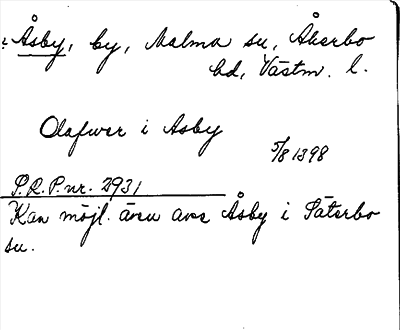 ? Åsby, by, Malma sn, Åkerbo
hd, Västm. l.
Olafwer i Asby
5/8 1398
P.R.P. nr. 2931
Kan möjl. även avse Åsby i Säterbo
sn.